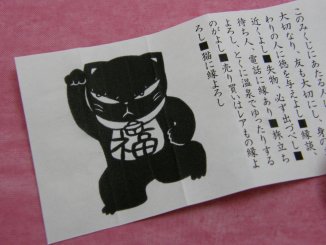 このみくじにあたる人は、身の
大切なり、友も大切にし、ま
わりの人に徳を与えよし■縁談、
近くよし■失物、必ず出づべし■
待ち人、電話に縁あり■旅立ち
よろし、とくに温泉でゆったりする
のがよし■売り買いはレアもの縁よ
ろし■猫に縁よろし
福